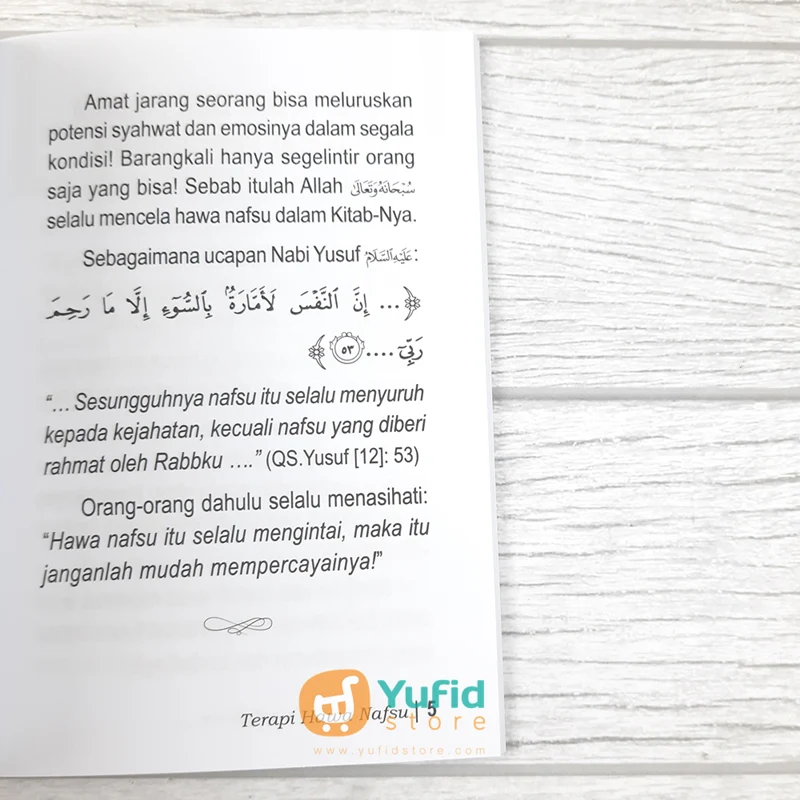 Amat jarang seorang bisa meluruskan
potensi syahwat dan emosinya dalam segala
kondisi! Barangkali hanya segelintir orang
saja yang bisa! Sebab itulah Allah سُبْحَانَهُ وَتَعَالَى
selalu mencela hawa nafsu dalam Kitab-Nya.
Sebagaimana ucapan Nabi Yusuf عَلَيْهِ السَّلَامُ:
﴿... إِنَّ ٱلنَّفْسَ لَأَمَّارَةٌۢ بِٱلسُّوٓءِ إِلَّا مَا رَحِمَ
رَبِّيٓ .... ٥٣﴾
“... Sesungguhnya nafsu itu selalu menyuruh
kepada kejahatan, kecuali nafsu yang diberi
rahmat oleh Rabbku ....” (QS.Yusuf [12]: 53)
Orang-orang dahulu selalu menasihati:
“Hawa nafsu itu selalu mengintai, maka itu
janganlah mudah mempercayainya!”
Terapi Hawa Nafsu | 5
Yufid
store
www.yufidstore.com